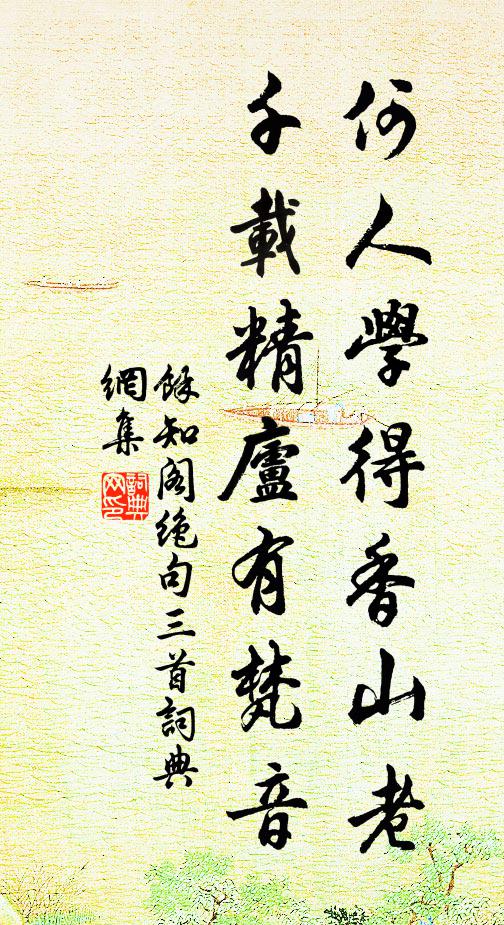 何人學得香山老
千載精廬有梵音
餘知閣絶句三首詞典
網集
詞典
网印